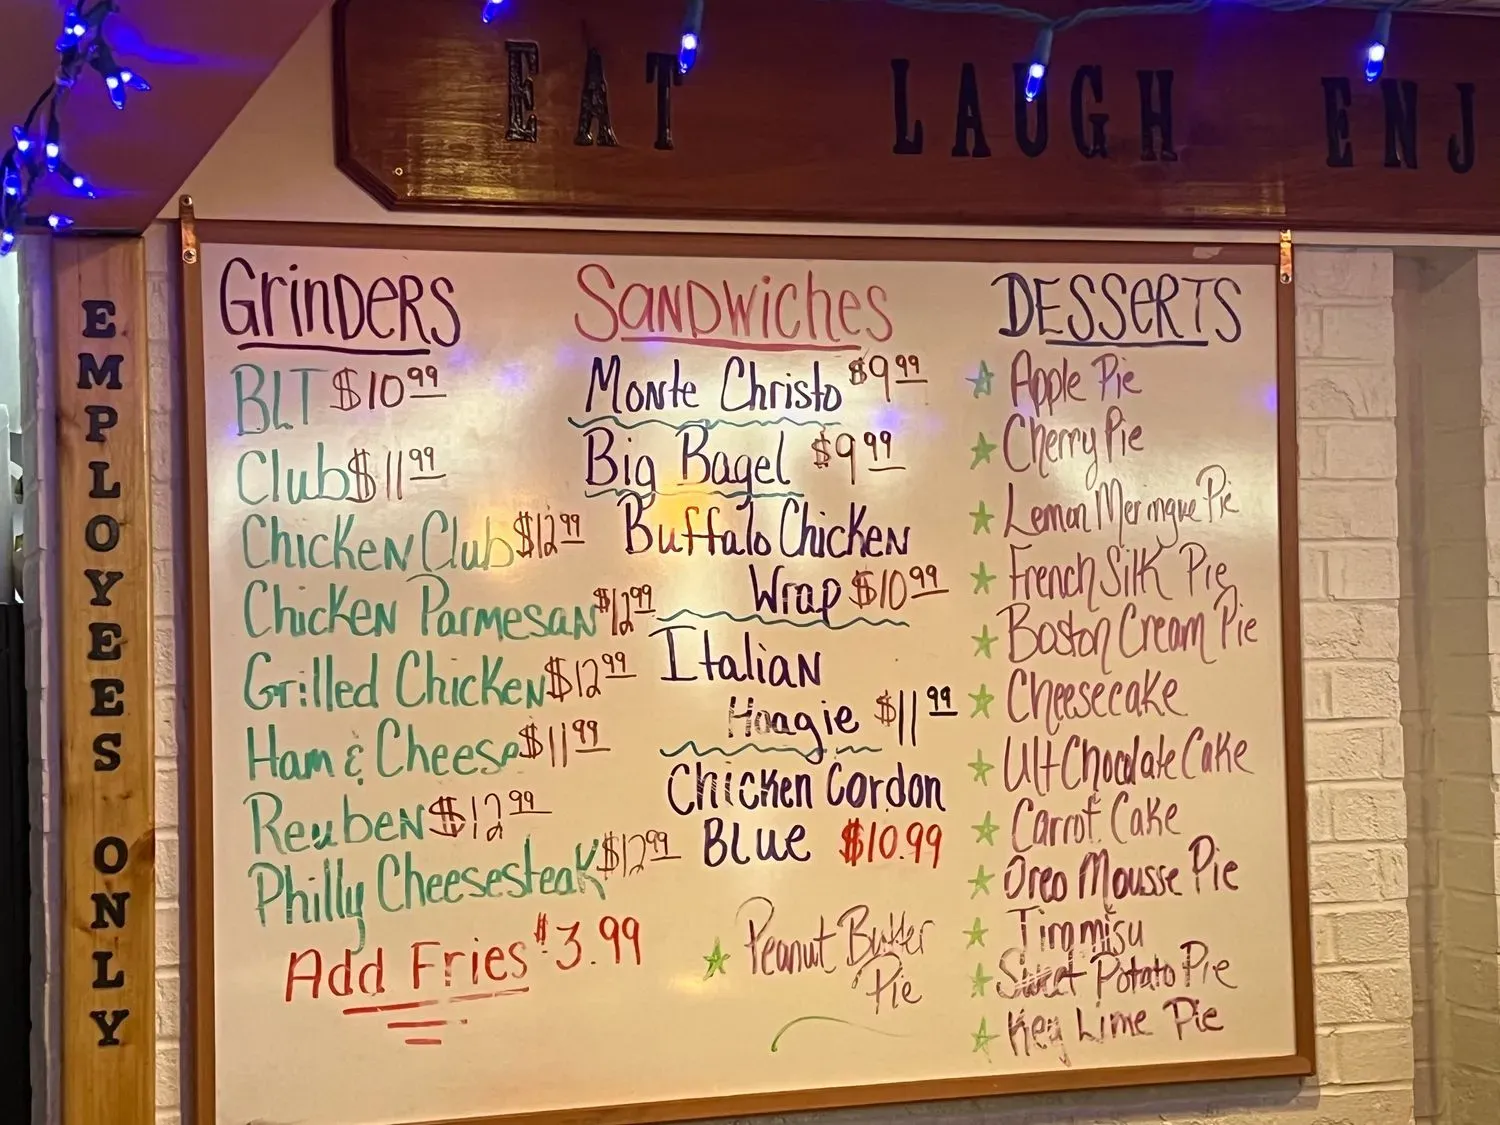 EAT LAUGH ENJ
EMPLOYEES ONLY
GrinDeRS
BLT $10.99
Club $11.99
Chicken Club $12.99
Chicken Parmesan $12.99
Grilled Chicken $12.99
Ham & Cheese $11.99
Reuben $12.99
Philly Cheesesteak $12.99
Add Fries $3.99
Sandwiches
Monte Christo $9.99
Big Bagel $9.99
Buffalo Chicken
Wrap $10.99
Italian
Hoagie $11.99
Chicken Cordon
Blue $10.99
Peanut Butter
Pie
DESSERTS
Apple Pie
Cherry Pie
Lemon Meringue Pie
French Silk Pie
Boston Cream Pie
Cheesecake
Ult Chocolate Cake
Carrot Cake
Oreo Mousse Pie
Tiramisu
Sweet Potato Pie
Key Lime Pie